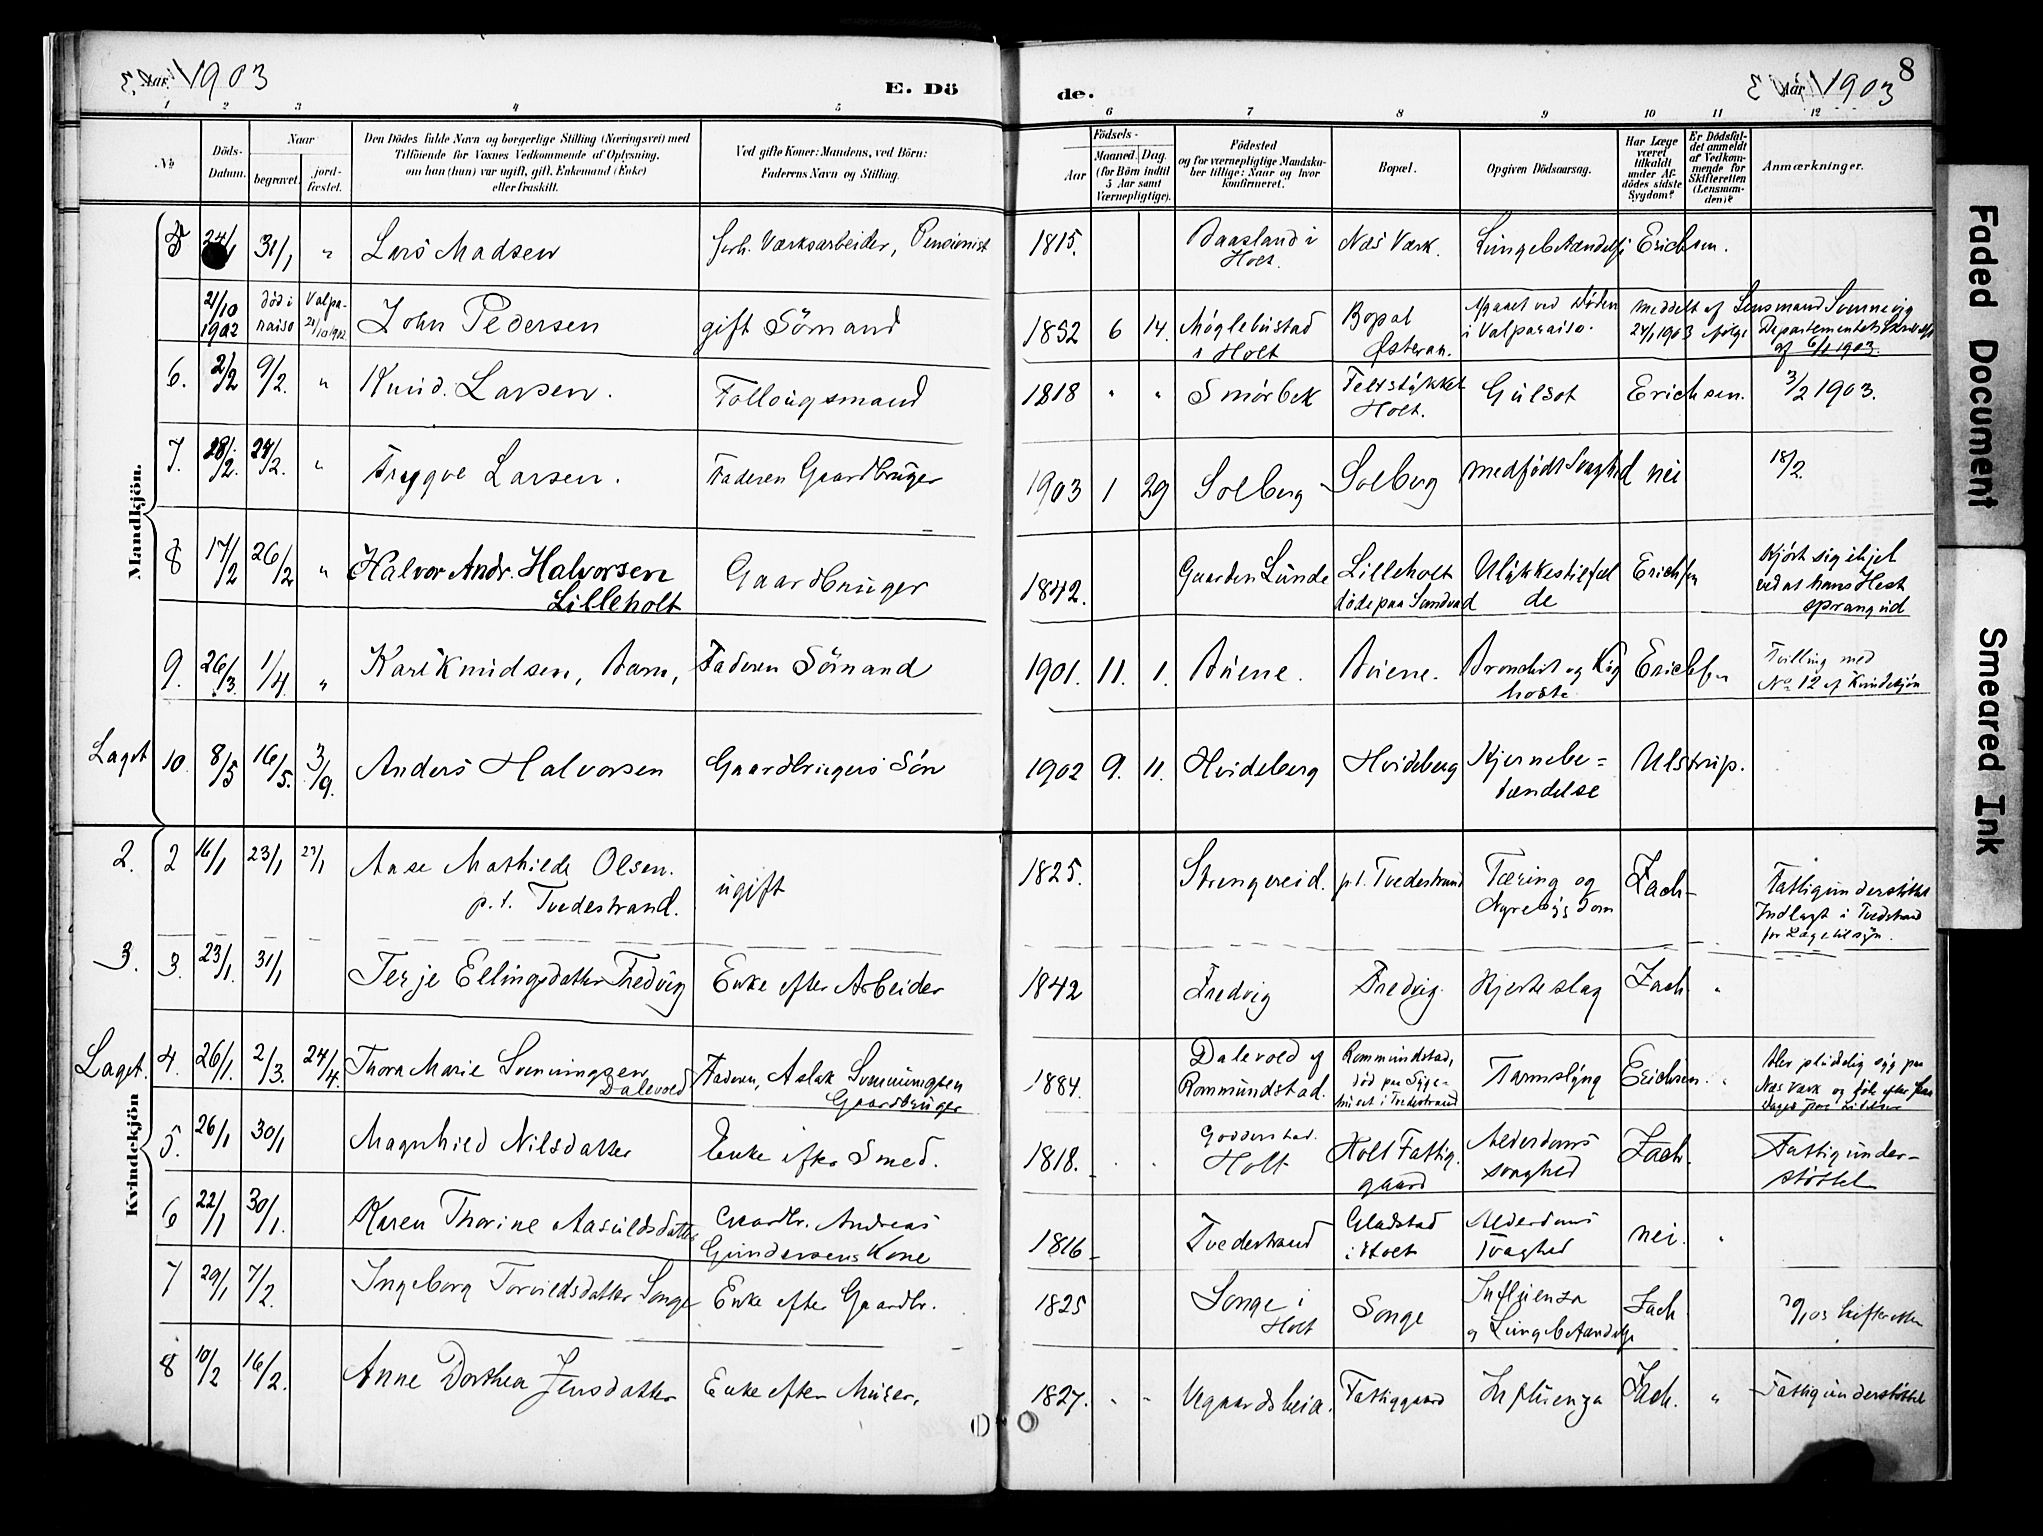 Aar 1903
E. Dö
de.
Aar 1903
8
1 2 3 4 5 6 7 8 9 10 11 12
No
Döds-
Datum.
Naar
begravet.
jord-
fæstet.
Den Dödes fulde Navn og borgerlige Stilling (Næringsvei) med
Tilföiende for Voxnes Vedkommende af Oplysning,
om han (hun) var ugift, gift, Enkemand (Enke)
eller fraskilt.
Ved gifte Koner: Mandens, ved Börn:
Faderens Navn og Stilling.
Födsels-
Aar
Maaned. Dag.
(for Börn indtil
5 Aar samt
Værnepligtige).
Födested
og for værnepligtige Mandska-
ber tillige: Naar og hvor
konfirmeret.
Bopæl.
Opgiven Dödsaarsag.
Har Læge
været
tilkaldt
under Af-
dödes sidste
Sygdom?
Er Dödsfal-
det anmeldt
af Vedkom-
mende for
Skifteretten
(Lensman-
den)?
Anmærkninger.
Mandkjön.
5 24/1 31/1 " Lars Madsen forh. Værksarbeider, Pensionist 1815. Baasland i Næs Værk. Lungebetændelse Erichsen.
Holt.
21/10 død i Valpa-
1902 raiso 24/10 1902 John Pedersen gift Sömand 1852 6 14. Möglebustad Bopæl
i Holt Østeraa.
i Valparaiso.
meddelt af Lensmand Svennevig
24/1 1903 følge Departementets Skrivelse
af 6/1 1903.
6. 2/2 9/2. " Knud Larsen. Follougsmand 1818 " " Smörbek Holt. Gulsot Erichsen. 3/2 1903.
7. 28/2. 24/2. " Trygve Larsen. Faderen Gaardbruger 1903 1 29 Solberg Solberg medfödt Svaghed nei 18/2.
8 17/2 26/2 " Halvor Andr. Halvorsen Gaardbruger 1842. Gaarden Lunde Lilleholt Ulykkestilfæl Erichsen
Lilleholt döde paa Sundvad de
Kjørt sig ihjel
ved at hans Hest
sprang ud
9. 26/3. 1/4. " Karl Knudsen, Barn, Faderen Sömand 1901. 11. 1. Buene. Buene. Bronchit og Kig Erichsen
hoste
Tvilling med
No 12 af Kvindekjön
Laget 10. 8/5 16/5. 3/9. Anders Halvorsen Gaardbrugers Sön 1902 9. 11. Hvideberg Hvideberg Hjernebe= Ulstrup.
tændelse
Kvindekjön
2. 2 16/1 23/1 23/1 Aase Mathilde Olsen. ugift 1825. Strengereid. p.t. Tvedestrand Tæring og Zach-
p.t. Tvedestrand. Nyresygdom
Fattigunderstöttet
Indlagt i Tvedstrand
for Lægetilsyn.
3. 3. 23/1. 31/1 Terje Ellingsdatter Fredvig Enke efter Arbeider 1842 Fredvig Fredvig. Hjerteslag Zach "
Laget. 4. 26/1. 2/3. 24/4. Thora Marie Svenningsen Faderen, Aslak Svenningsen 1884. Dalevold af Rommundstad, Tarmslyng Erichsen. "
Dalevold Gaardbruger Rommundstad. död paa Syge-
huset i Tvedestrand
Blev pludselig syg paa
Næs Værk og døde efter faa
Dages
5. 26/1 30/1 Magnhild Nilsdatter Enke efter Smed. 1818. " " Goderstad. Holt Fattig. Alderdoms Zach. Fattigunder-
Holt gaard svaghed støttet
6 22/1 30/1. Karen Thorine Aasuldsdatter Gaardbr. Andreas 1816 Tvedestrand Gladstad Alderdoms nei. "
Gundersens Kone i Holt svaghed
7 29/1 7/2. Ingeborg Torvildsdatter Songe Enke efter Gaardbr. 1825 Songe i Songe Influenza Zach
Holt og Lungebetændelse
8 10/2 16/2. Anne Dorthea Jensdatter Enke efter Murer, 1827. " " Ugaardsheia. Fattiggaard Influenza Zach. " Fattigunderstöttet
Faded Document
Smeared Ink